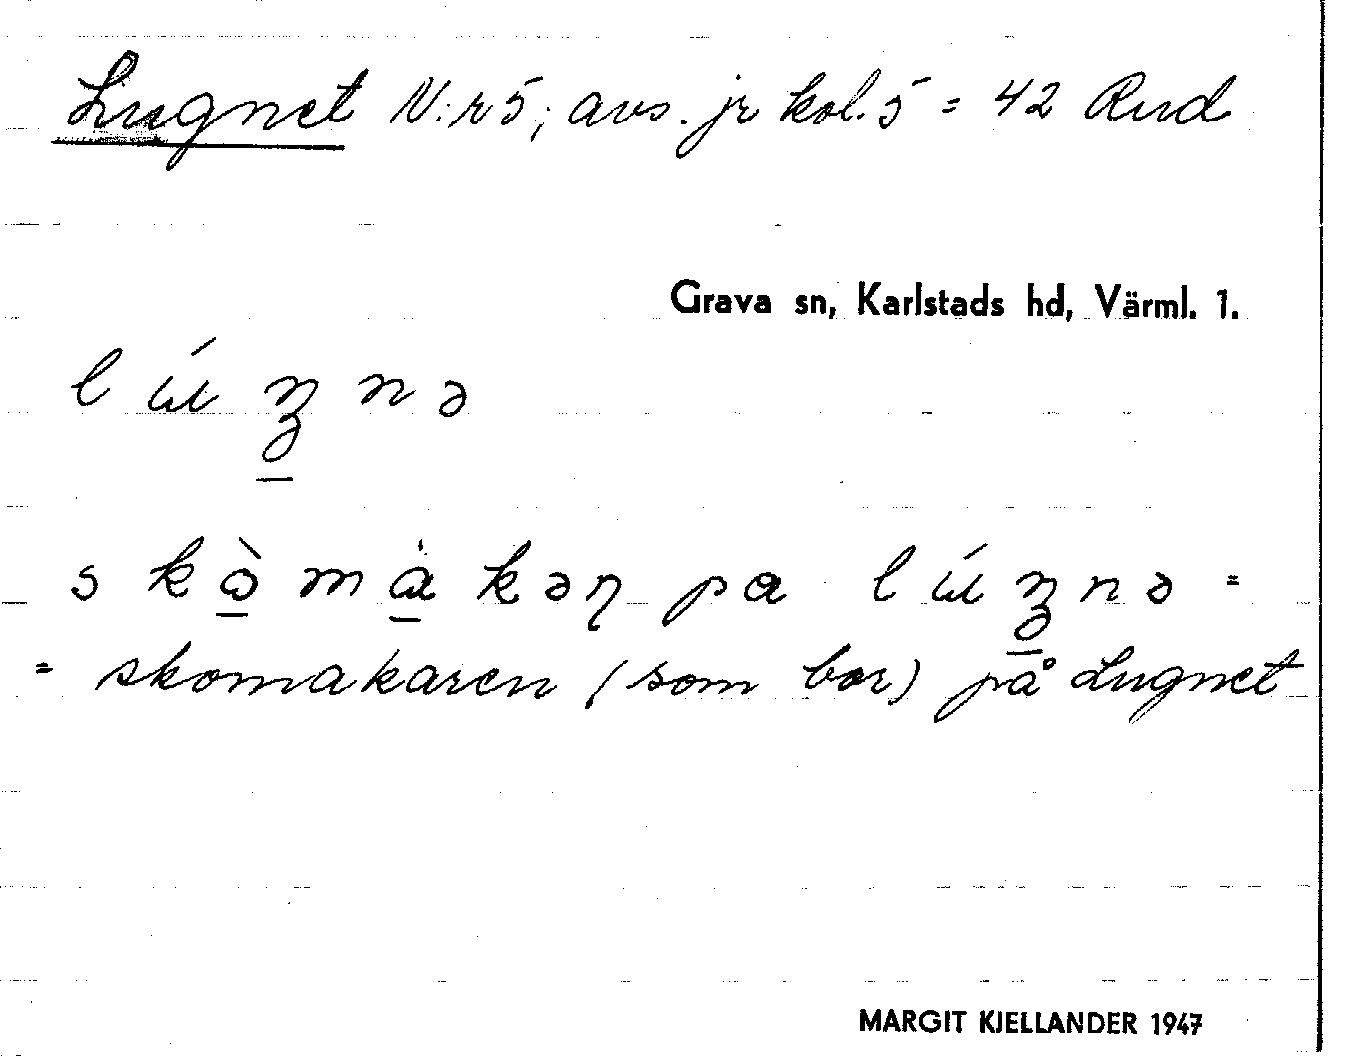 Lugnet N:r 5; avs. jr kol. 5 = 42 Rud
Grava sn, Karlstads hd, Värml. 1.
l ɯ́ ŋ̲ n ə
s k ò̲ m à̲ k ə ɳ p a l ɯ́ ŋ̲ n ə =
= skomakaren (som bor) på Lugnet
MARGIT KJELLANDER 1947